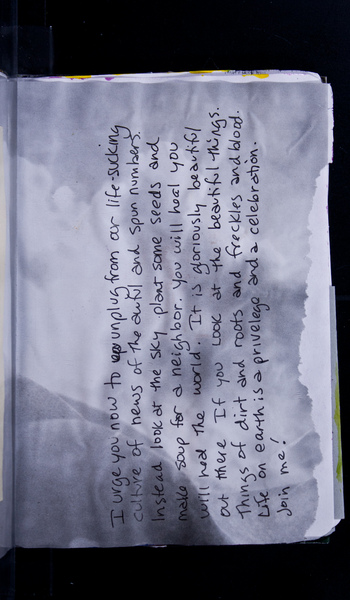 I urge you now to unplug from our life-sucking
culture of news of the awful and spun numbers.
Instead look at the sky plant some seeds and
make soup for a neighbor. You will heal you
will heal the world. It is gloriously beautiful
out there If you look at the beautiful things.
Things of dirt and roots and freckles and blood.
Life on earth is a privelege and a celebration.
Join me!